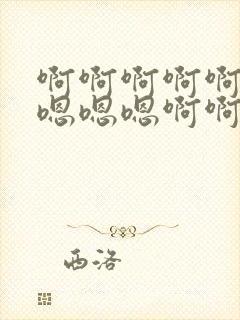 啊啊啊啊啊
嗯嗯嗯啊啊
西洛